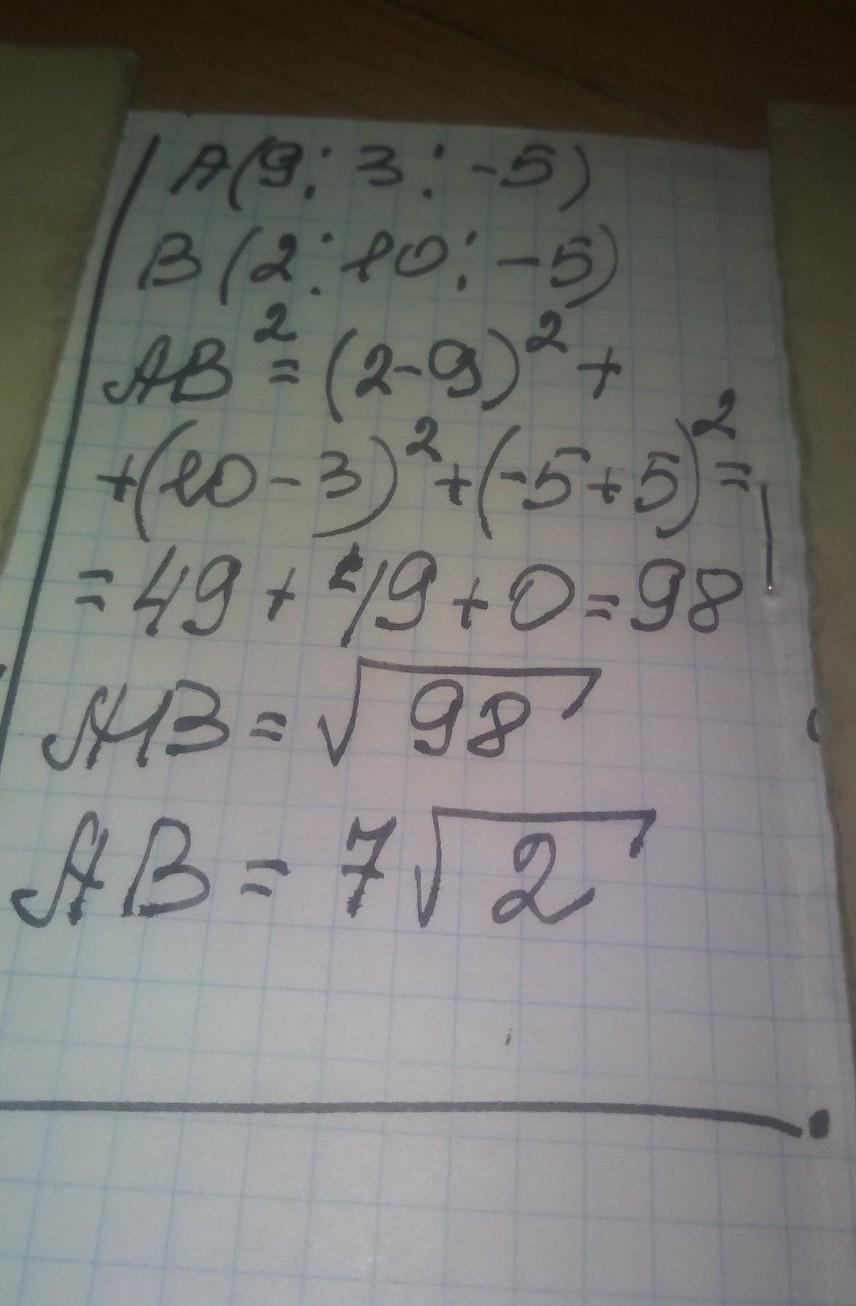 A(9; 3; -5)
B(2; 10; -5)
AB² = (2-9)² +
+(10-3)²+(-5+5)² =
= 49 + 49 + 0 = 98
AB = √98
AB = 7√2